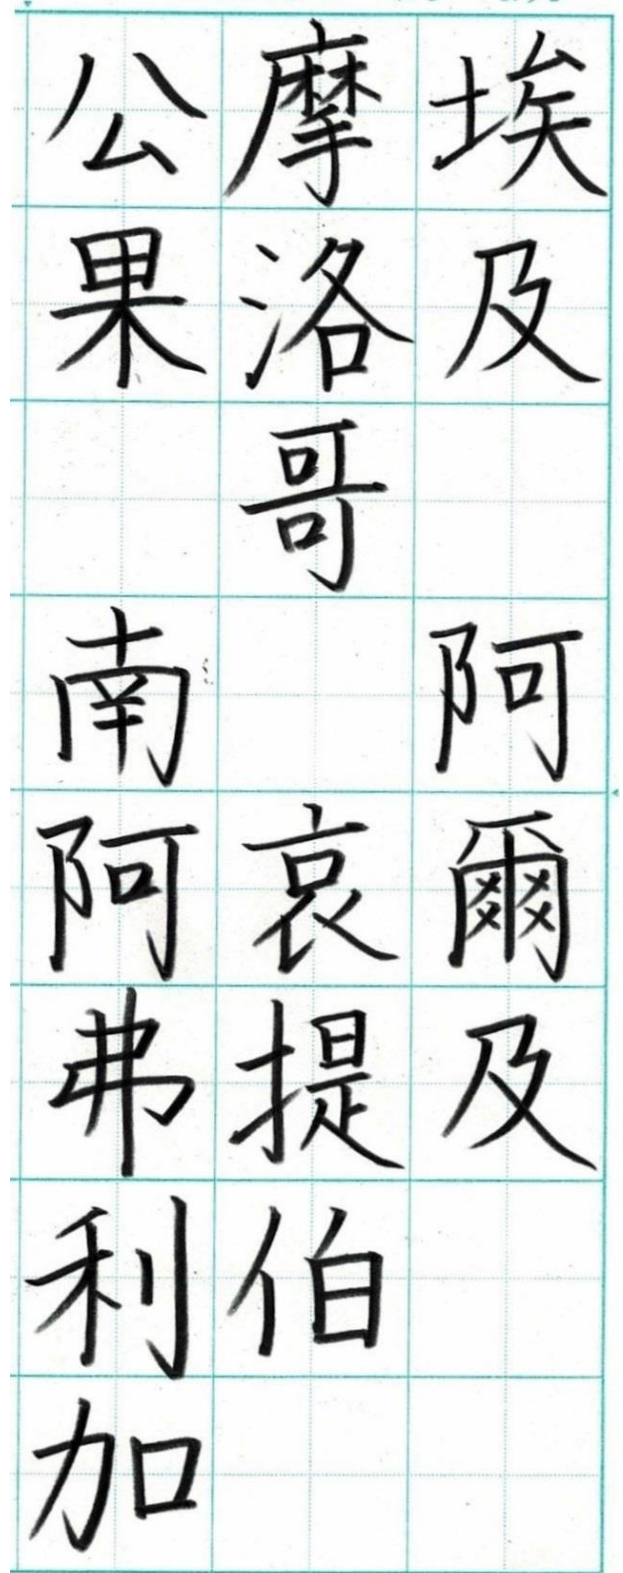 埃及 阿爾及
摩洛哥 哀提伯
公果 南阿弗利加